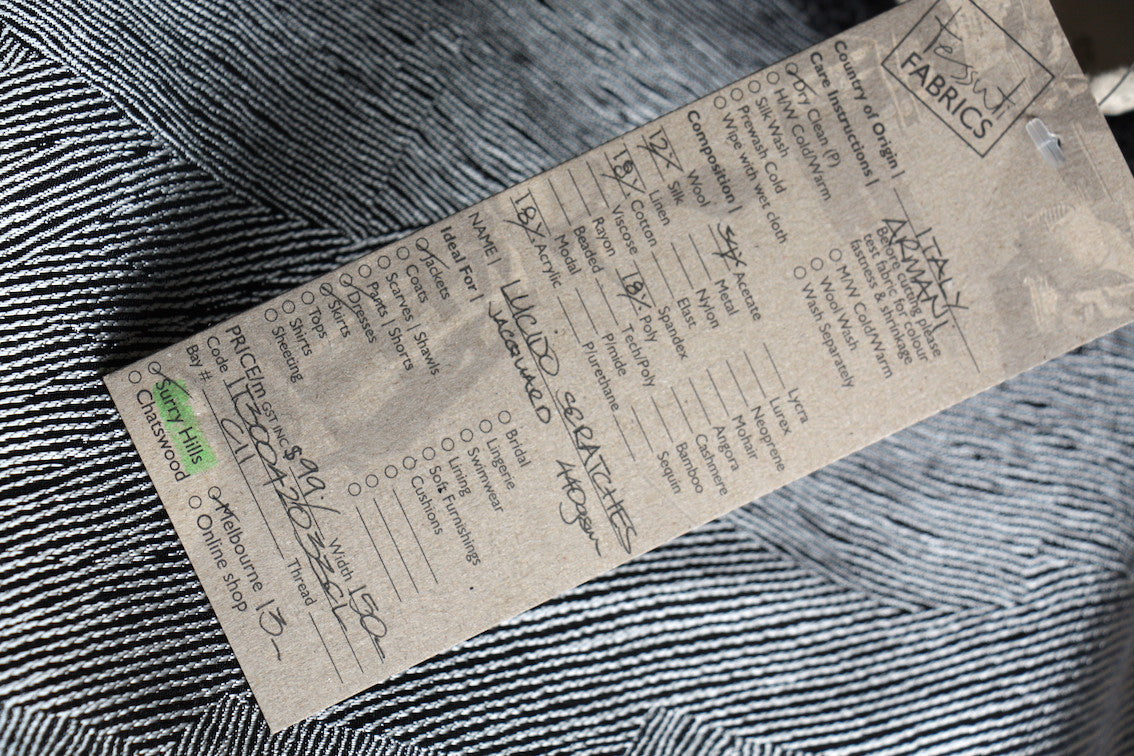 Tessuti
FABRICS
Country of Origin | ITALY
ARMANI
Care Instructions | Before cutting please
test fabric for colour
fastness & shrinkage
Dry Clean (P)
H/W Cold/Warm
M/W Cold/Warm
Silk Wash
Wool Wash
Prewash Cold
Wash Separately
Wipe with wet cloth
Composition |
Wool
54% Acetate
Lycra
12% Silk
Metal
Lurex
Linen
Nylon
Neoprene
18% Cotton
Elast
Mohair
Viscose
Spandex
Angora
Rayon
18% Poly
Cashmere
Beaded
Tech/Poly
Bamboo
Modal
P/mide
Sequin
18% Acrylic
P/urethane
NAME | LUCIDO SCRATCHES
JACQUARD 440gsm
Ideal For |
Jackets
Bridal
Coats
Lingerie
Scarves | Shawls
Swimwear
Pants | Shorts
Lining
Dresses
Soft Furnishings
Skirts
Cushions
Tops
Shirts
Sheeting
PRICE/m GST INC $99/ Width 150
Code
Bay # Thread
Surry Hills
Melbourne 13m
Chatswood
Online shop